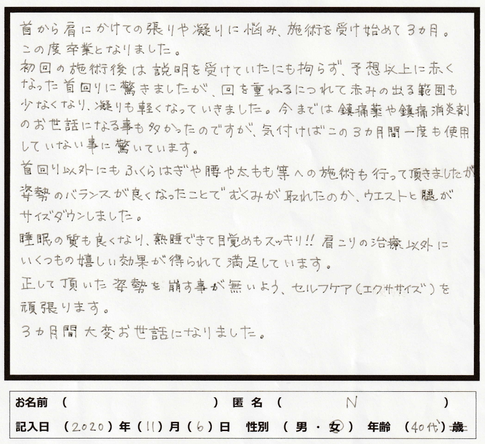 首から肩にかけての張りや凝りに悩み、施術を受け始めて3ヵ月。
この度卒業となりました。
初回の施術後は説明を受けていたにも拘らず、予想以上に赤く
なった首回りに驚きましたが、回を重ねるにつれて赤みの出る範囲も
少なくなり、凝りも軽くなっていきました。今までは鎮痛薬や鎮痛消炎剤
のお世話になる事も多かったのですが、気付けばこの3ヵ月間一度も使用
していない事に驚いています。
首回り以外にもふくらはぎや腰や太もも等への施術も行って頂きましたが
姿勢のバランスが良くなったことでむくみが取れたのか、ウエストと腿が
サイズダウンしました。
睡眠の質も良くなり、熟睡できて目覚めもスッキリ!! 肩こりの治療以外に
いくつもの嬉しい効果が得られて満足しています。
正して頂いた姿勢を崩す事が無いよう、セルフケア(エクササイズ)を
頑張ります。
3ヵ月間大変お世話になりました。
お名前 ( ) 匿名 ( N )
記入日 (2020)年(11)月(6)日 性別 (男・女) 年齢 (40代)歳